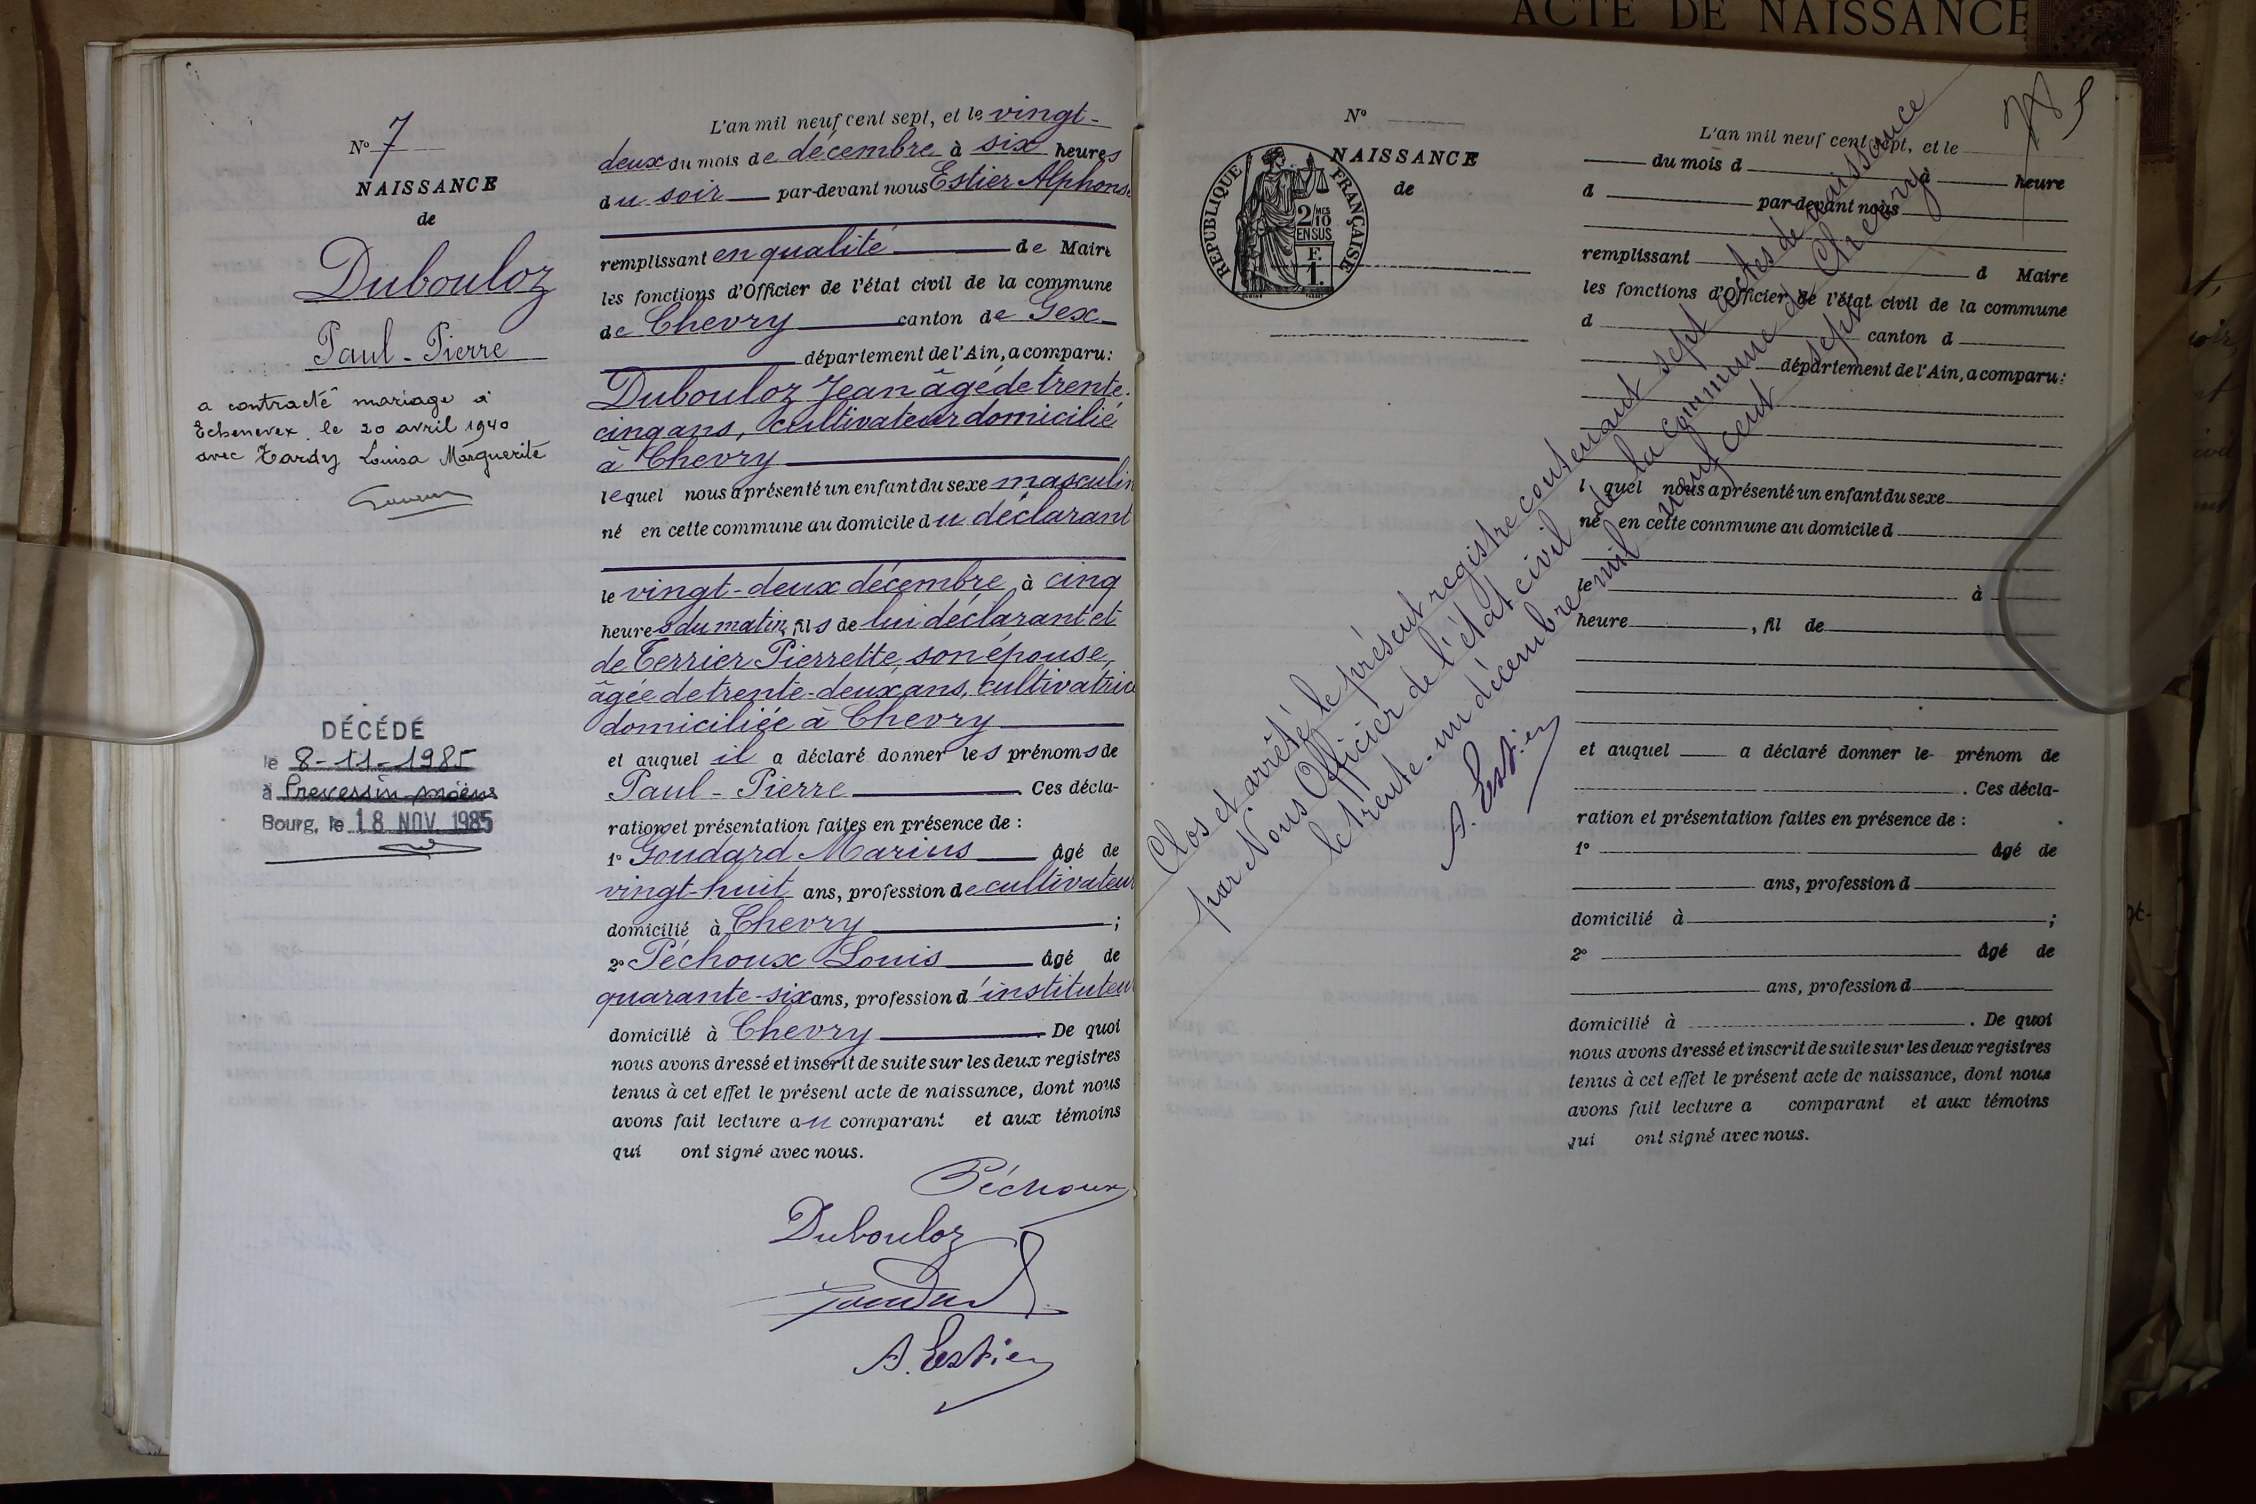 ACTE DE NAISSANCE
N° 7
NAISSANCE
de
Dubouloz
Paul-Pierre
a contracté mariage à
Echenevex le 20 avril 1940
avec Tardy Louisa Marguerite
DÉCÉDÉ
le 8-11-1985
à Prevessin-moëns
Bourg, le 18 NOV. 1985
L'an mil neuf cent sept, et le vingt-
deux du mois de décembre à six heures
du soir par-devant nous Estier Alphonse
remplissant en qualité de Maire
les fonctions d'Officier de l'état civil de la commune
de Chevry canton de Gex
département de l'Ain, a comparu:
Dubouloz Jean âgé de trente-
cinq ans, cultivateur domicilié
à Chevry
lequel nous a présenté un enfant du sexe masculin
né en cette commune au domicile du déclarant
le vingt-deux décembre à cinq
heures du matin, fils de lui déclarant et
de Terrier Pierrette, son épouse,
âgée de trente-deux ans, cultivatrice
domiciliée à Chevry
et auquel il a déclaré donner les prénoms de
Paul-Pierre. Ces décla-
ration et présentation faites en présence de :
1° Goudard Marius âgé de
vingt-huit ans, profession de cultivateur
domicilié à Chevry ;
2° Péchoux Louis âgé de
quarante-six ans, profession d'instituteur
domicilié à Chevry. De quoi
nous avons dressé et inscrit de suite sur les deux registres
tenus à cet effet le présent acte de naissance, dont nous
avons fait lecture au comparant et aux témoins
qui ont signé avec nous.
Péchoux
Dubouloz
Goudard
A. Estier
N°
NAISSANCE
de
RÉPUBLIQUE FRANÇAISE
2/10 MES
EN SUS
F.
1.
L'an mil neuf cent sept, et le
du mois d à heure
d par-devant nous
remplissant d Maire
les fonctions d'Officier de l'état civil de la commune
d canton d
département de l'Ain, a comparu:
l quel nous a présenté un enfant du sexe
né en cette commune au domicile d
le à
heure , fil de
et auquel a déclaré donner le prénom de
. Ces décla-
ration et présentation faites en présence de :
1° âgé de
ans, profession d
domicilié à ;
2° âgé de
ans, profession d
domicilié à . De quoi
nous avons dressé et inscrit de suite sur les deux registres
tenus à cet effet le présent acte de naissance, dont nous
avons fait lecture a comparant et aux témoins
qui ont signé avec nous.
Clos et arrêté le présent registre contenant sept actes de naissance
par Nous Officier de l'état civil de la commune de Chevry
le trente-un décembre mil neuf cent sept
A. Estier